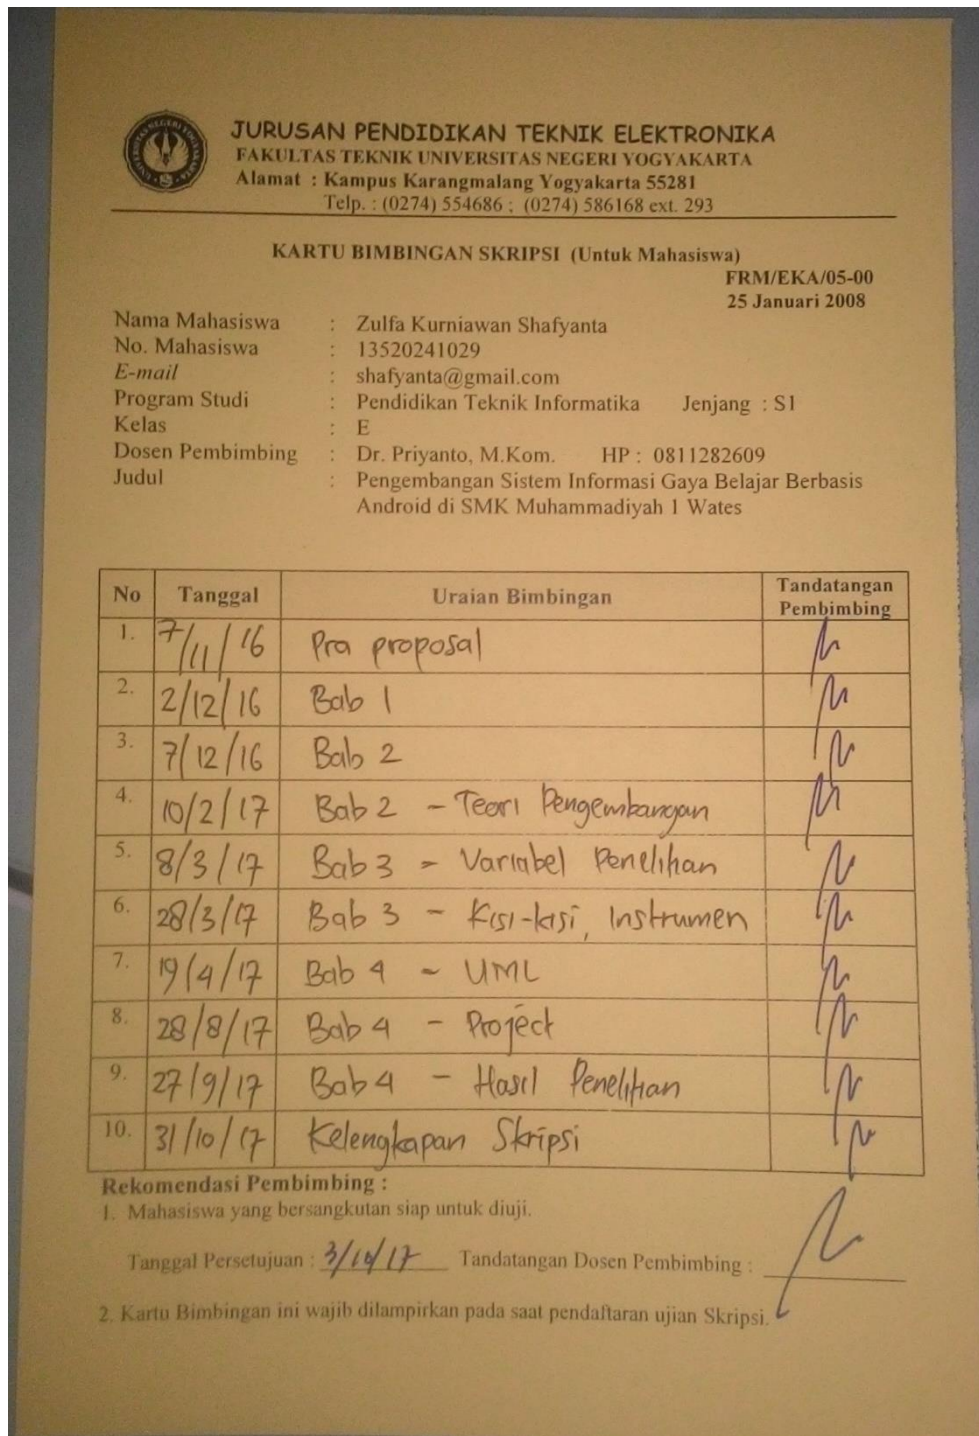 UNIVERSITAS NEGERI YOGYAKARTA
JURUSAN PENDIDIKAN TEKNIK ELEKTRONIKA
FAKULTAS TEKNIK UNIVERSITAS NEGERI YOGYAKARTA
Alamat : Kampus Karangmalang Yogyakarta 55281
Telp. : (0274) 554686 ; (0274) 586168 ext. 293
KARTU BIMBINGAN SKRIPSI (Untuk Mahasiswa)
FRM/EKA/05-00
25 Januari 2008
Nama Mahasiswa : Zulfa Kurniawan Shafyanta
No. Mahasiswa : 13520241029
E-mail : shafyanta@gmail.com
Program Studi : Pendidikan Teknik Informatika Jenjang : S1
Kelas : E
Dosen Pembimbing : Dr. Priyanto, M.Kom. HP : 0811282609
Judul : Pengembangan Sistem Informasi Gaya Belajar Berbasis
Android di SMK Muhammadiyah 1 Wates
No Tanggal Uraian Bimbingan Tandatangan Pembimbing
1. 7/11/16 Pra proposal
2. 2/12/16 Bab 1
3. 7/12/16 Bab 2
4. 10/2/17 Bab 2 - Teori Pengembangan
5. 8/3/17 Bab 3 - Variabel Penelitian
6. 28/3/17 Bab 3 - Kisi-kisi, Instrumen
7. 19/4/17 Bab 4 - UML
8. 28/8/17 Bab 4 - Project
9. 27/9/17 Bab 4 - Hasil Penelitian
10. 31/10/17 Kelengkapan Skripsi
Rekomendasi Pembimbing :
1. Mahasiswa yang bersangkutan siap untuk diuji.
Tanggal Persetujuan : 3/10/17 Tandatangan Dosen Pembimbing :
2. Kartu Bimbingan ini wajib dilampirkan pada saat pendaftaran ujian Skripsi.